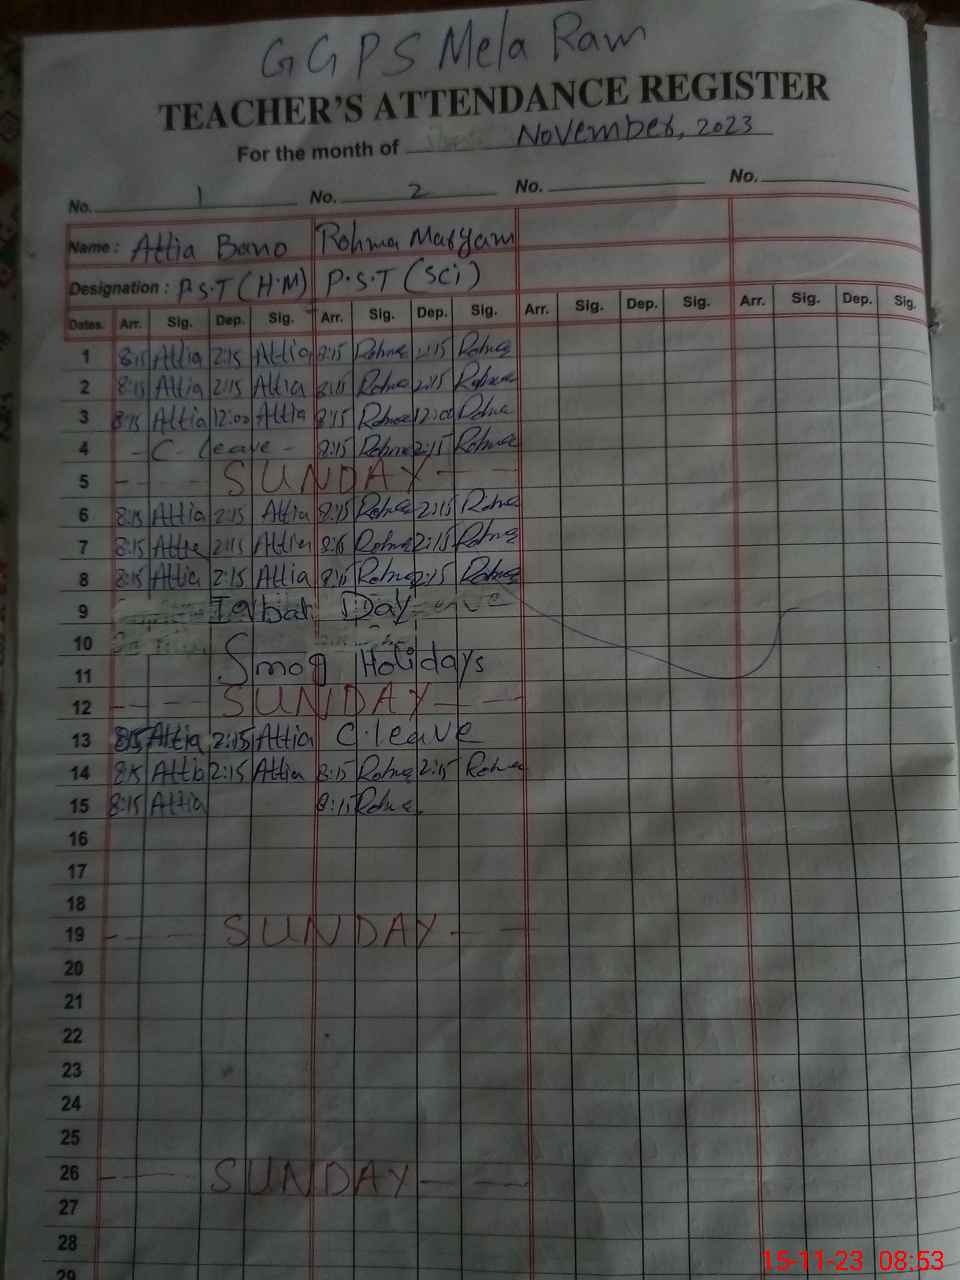 GGPS Mela Ram
TEACHER'S ATTENDANCE REGISTER
For the month of November, 2023
No. 1 No. 2 No. No.
Name : Attia Bano Rohma Maryam
Designation : P.S.T (H.M) P.S.T (Sci)
Dates. Arr. Sig. Dep. Sig. Arr. Sig. Dep. Sig. Arr. Sig. Dep. Sig. Arr. Sig. Dep. Sig.
1 8:15 Attia 2:15 Attia 8:15 Rohma 2:15 Rohma
2 8:15 Attia 2:15 Attia 8:15 Rohma 2:15 Rohma
3 8:15 Attia 12:00 Attia 8:15 Rohma 12:00 Rohma
4 - C. leave - 8:15 Rohma 2:15 Rohma
5 SUNDAY
6 8:15 Attia 2:15 Attia 8:15 Rohma 2:15 Rohma
7 8:15 Attia 2:15 Attia 8:15 Rohma 2:15 Rohma
8 8:15 Attia 2:15 Attia 8:15 Rohma 2:15 Rohma
9 Iqbal Day
10
11 Smog Holidays
12 SUNDAY
13 8:15 Attia 2:15 Attia C.leave
14 8:15 Attia 2:15 Attia 8:15 Rohma 2:15 Rohma
15 8:15 Attia 8:15 Rohma
16
17
18
19 SUNDAY
20
21
22
23
24
25
26 SUNDAY
27
28
29
15-11-23 08:53